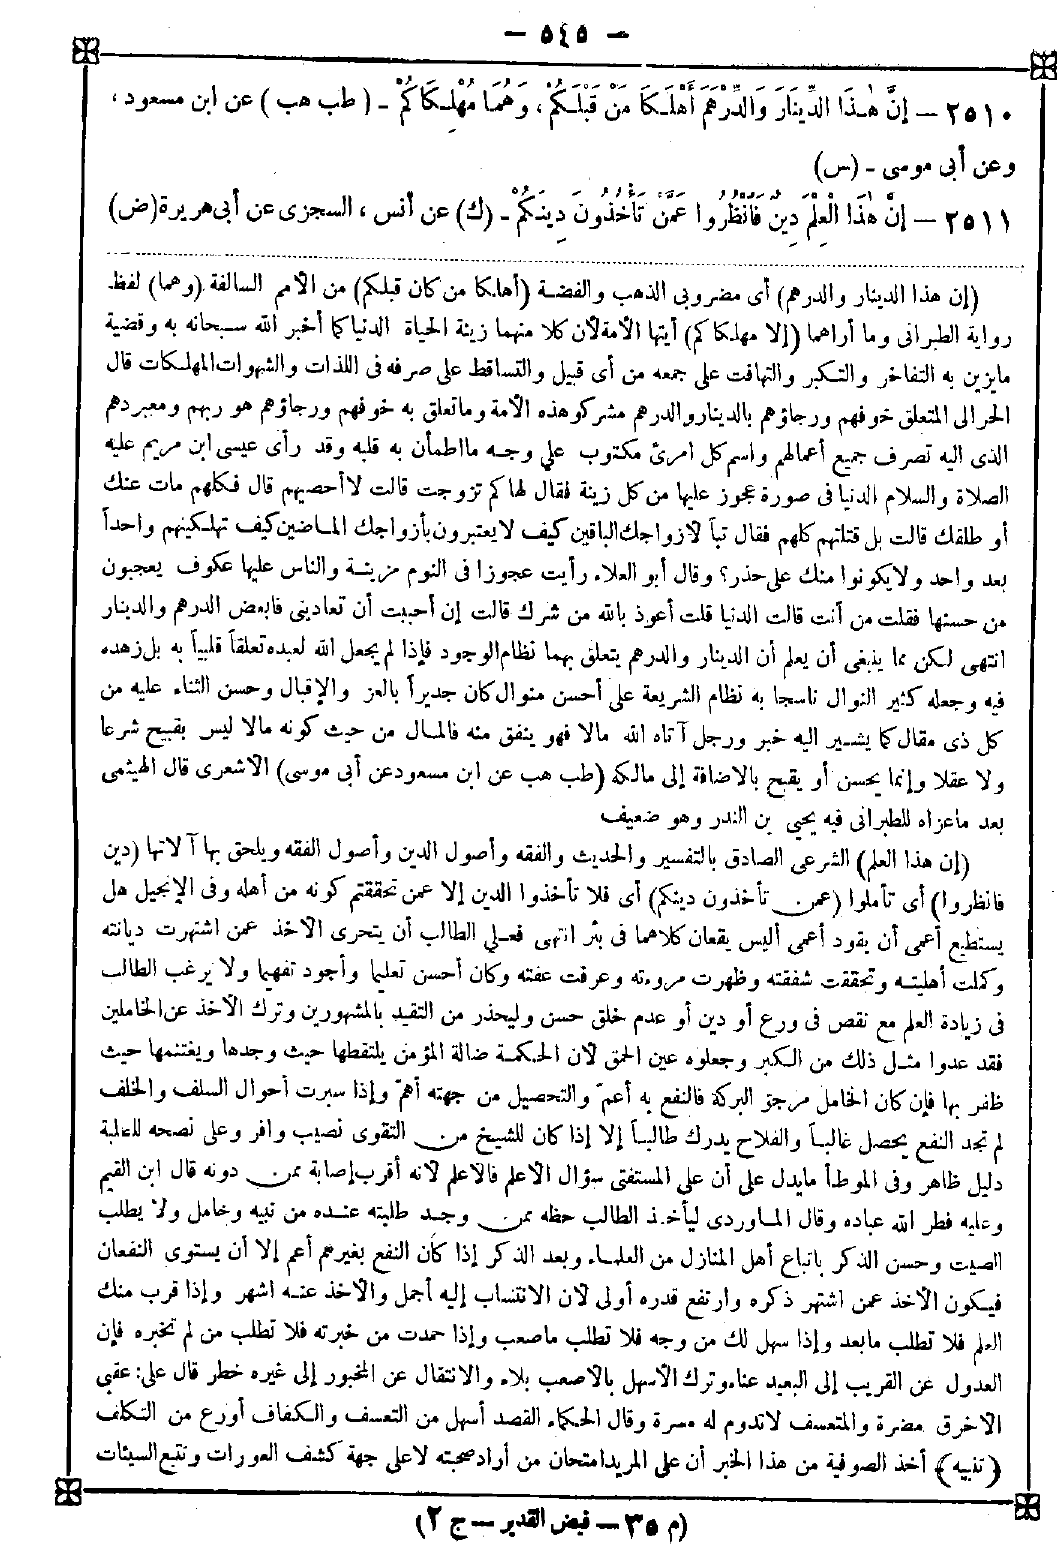 — ٥٤٥ —
٢٥١٠ — إِنَّ هٰذَا الدِّينَارَ وَالدِّرْهَمَ أَهْلَكَا مَنْ قَبْلَكُمْ، وَهُمَا مُهْلِكَاكُمْ - ( طب هب ) عن ابن مسعود،
وعن أبى موسى - (س)
٢٥١١ — إِنَّ هٰذَا الْعِلْمَ دِينٌ فَانْظُرُوا عَمَّنْ تَأْخُذُونَ دِينَكُمْ - (ك) عن أنس، السجزى عن أبى هريرة (ض)
(إن هذا الدينار والدرهم) أى مضروبى الذهب والفضة (أهلكا من كان قبلكم) من الأمم السالفة (وهما) لفظ
رواية الطبرانى وما أراهما (إلا مهلكاكم) أيتها الأمة لأن كلا منهما زينة الحياة الدنيا كما أخبر الله سبحانه به وقضية
مايزين به التفاخر والتكبر والتهافت على جمعه من أى قبيل والتساقط على صرفه فى اللذات والشهوات المهلكات قال
الحرالى المتعلق خوفهم ورجاؤهم بالدينار والدرهم مشركو هذه الأمة وماتعلق به خوفهم ورجاؤهم هو ربهم ومعبودهم
الذى اليه تصرف جميع أعمالهم واسم كل امرئ مكتوب على وجه مااطمأن به قلبه وقد رأى عيسى ابن مريم عليه
الصلاة والسلام الدنيا فى صورة عجوز عليها من كل زينة فقال لها كم تزوجت قالت لا أحصيهم قال فكلهم مات عنك
أو طلقك قالت بل قتلتهم كلهم فقال تباً لأزواجك الباقين كيف لايعتبرون بأزواجك الماضين كيف تهلكينهم واحداً
بعد واحد ولا يكونوا منك على حذر؟ وقال أبو العلاء رأيت عجوزا فى النوم مزينة والناس عليها عكوف يعجبون
من حسنها فقلت من أنت قالت الدنيا قلت أعوذ بالله من شرك قالت إن أحببت أن تعادينى فابغض الدرهم والدينار
انتهى لكن مما ينبغى أن يعلم أن الدينار والدرهم يتعلق بهما نظام الوجود فإذا لم يجعل الله لعبده تعلقاً قلبياً به بل زهده
فيه وجعله كثير النوال ناسجا به نظام الشريعة على أحسن منوال كان جديراً بالعز والإقبال وحسن الثناء عليه من
كل ذى مقال كما يشير اليه خبر ورجل آتاه الله مالا فهو ينفق منه فالمال من حيث كونه مالا ليس بقبيح شرعا
ولا عقلا وإنما يحسن أو يقبح بالاضافة إلى مالكه (طب هب عن ابن مسعود عن أبى موسى) الأشعرى قال الهيثمى
بعد ماعزاه للطبرانى فيه يحيى بن المنذر وهو ضعيف
(إن هذا العلم) الشرعى الصادق بالتفسير والحديث والفقه وأصول الدين وأصول الفقه ويلحق بها آلاتها (دين
فانظروا) أى تأملوا (عمن تأخذون دينكم) أى فلا تأخذوا الدين إلا عمن تحققتم كونه من أهله وفى الإنجيل هل
يستطيع أعمى أن يقود أعمى أليس يقعان كلاهما فى بئر انتهى فعلى الطالب أن يتحرى الأخذ عمن اشتهرت ديانته
وكملت أهليته وتحققت شفقته وظهرت مروءته وعرفت عفته وكان أحسن تعليما وأجود تفهيما ولا يرغب الطالب
فى زيادة العلم مع نقص فى ورع أو دين أو عدم خلق حسن وليحذر من التقيد بالمشهورين وترك الأخذ عن الخاملين
فقد عدوا مثل ذلك من الكبر وجعلوه عين الحمق لأن الحكمة ضالة المؤمن يلتقطها حيث وجدها ويغتنمها حيث
ظفر بها فإن كان الخامل مرجو البركة فالنفع به أعمّ والتحصيل من جهته أهمّ وإذا سبرت أحوال السلف والخلف
لم تجد النفع يحصل غالباً والفلاح يدرك طالباً إلا إذا كان للشيخ من التقوى نصيب وافر وعلى نصحه للطلبة
دليل ظاهر وفى الموطأ مايدل على أن على المستفتى سؤال الأعلم فالأعلم لأنه أقرب إصابة ممن دونه قال ابن القيم
وعليه فطر الله عباده وقال الماوردى ليأخذ الطالب حظه ممن وجد طلبته عنده من نبيه وخامل ولا يطلب
الصيت وحسن الذكر باتباع أهل المنازل من العلماء وبعد الذكر إذا كان النفع بغيرهم أعم إلا أن يستوى النفعان
فيكون الأخذ عمن اشتهر ذكره وارتفع قدره أولى لأن الانتساب إليه أجمل والأخذ عنه اشهر وإذا قرب منك
العلم فلا تطلب مابعد وإذا سهل لك من وجه فلا تطلب ماصعب وإذا حمدت من خبرته فلا تطلب من لم تخبره فإن
العدول عن القريب إلى البعيد عناء وترك الأسهل بالأصعب بلاء والانتقال عن المخبور إلى غيره خطر قال على: عقبى
الأخرق مضرة والمتعسف لاتدوم له مسرة وقال الحكماء القصد أسهل من التعسف والكفاف أورع من التكلف
(تنبيه) أخذ الصوفية من هذا الخبر أن على المريد امتحان من أراد صحبته لا على جهة كشف العورات وتتبع السيئات
(م ٣٥ — فيض القدير — ج ٢)